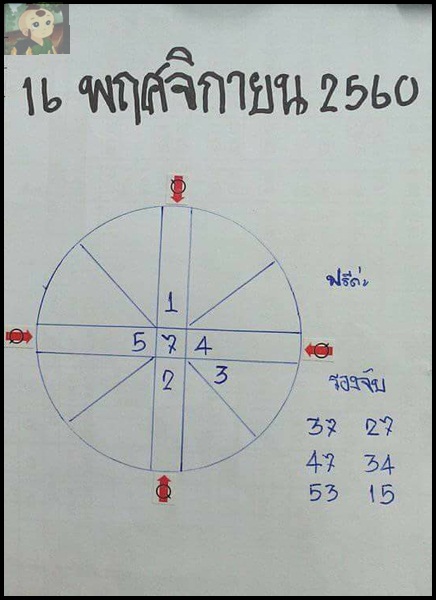 16 พฤศจิกายน 2560
ฟรีค่ะ
1
5 7 4
2 3
รองจับ
37 27
47 34
53 15